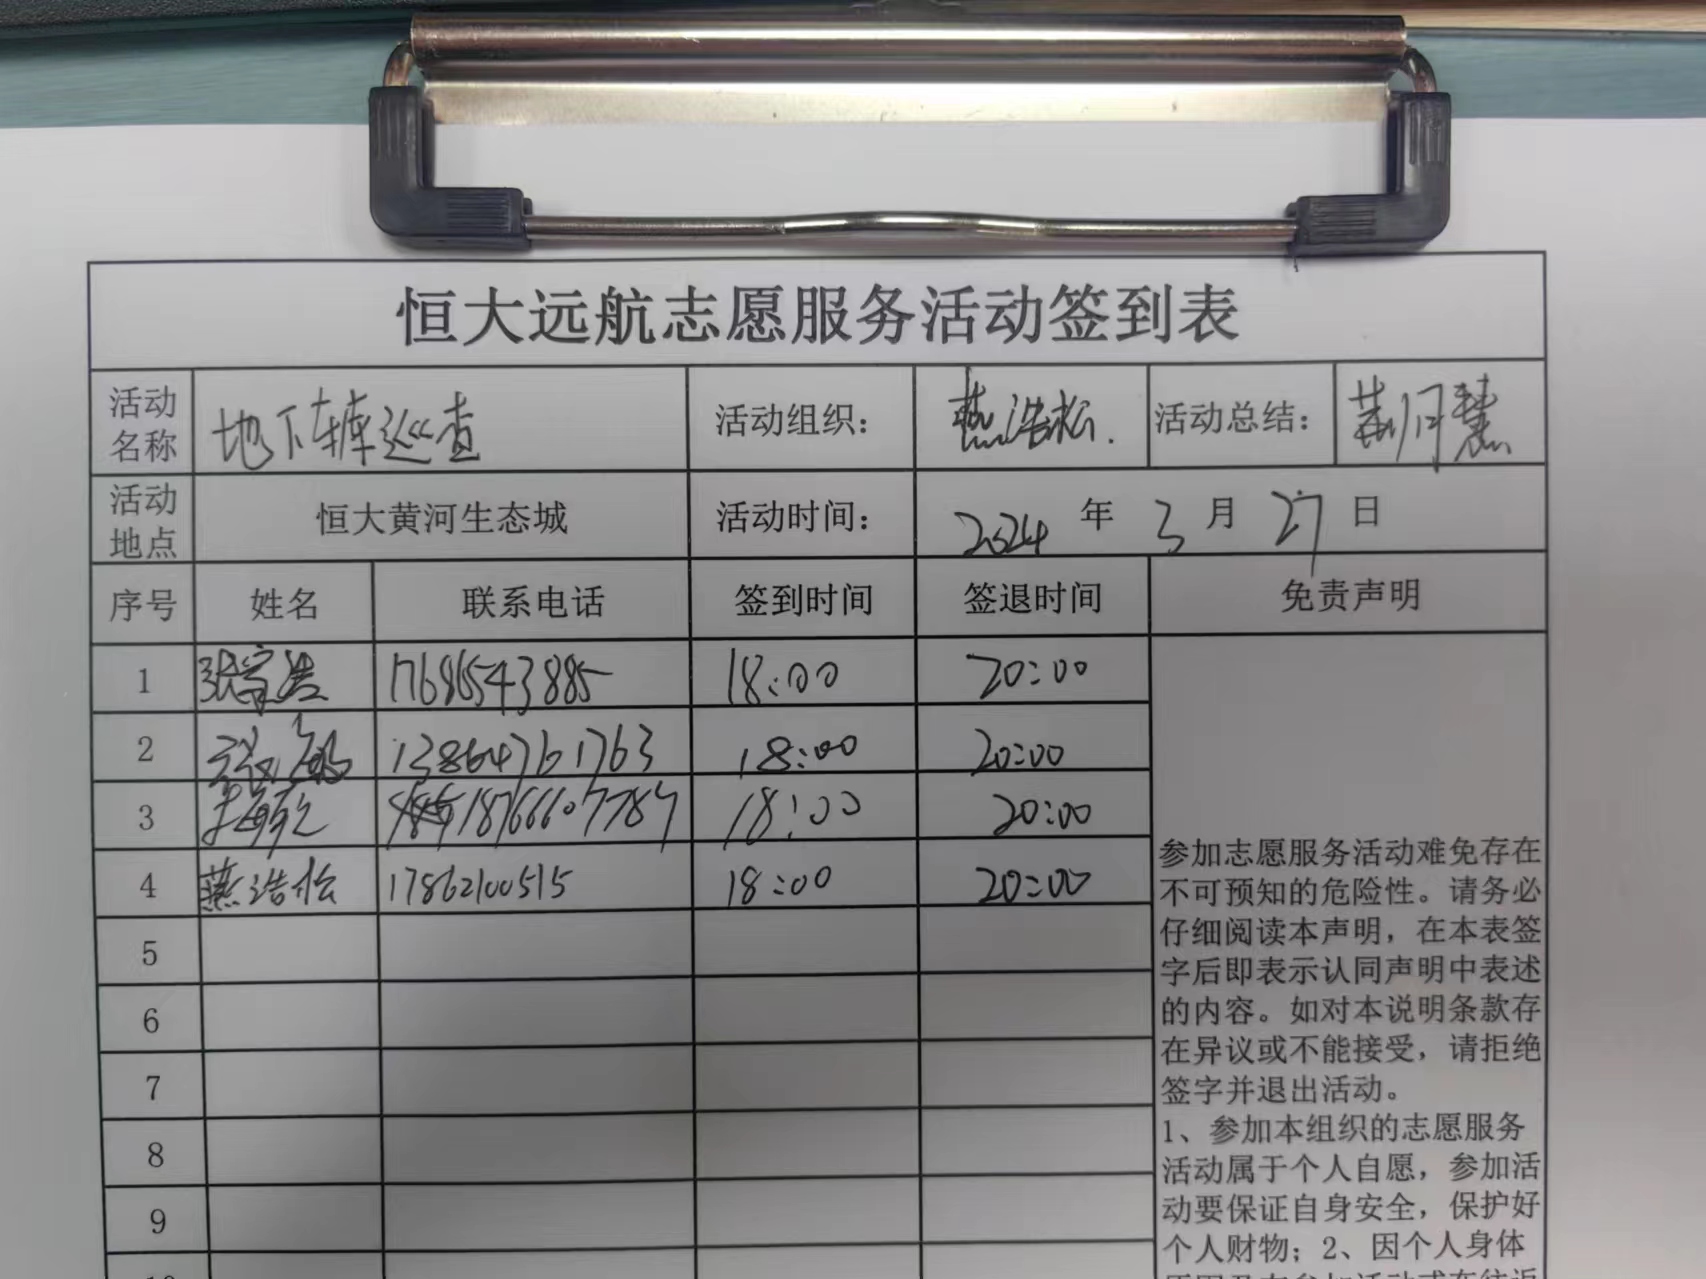 恒大远航志愿服务活动签到表
活动名称 地下车库巡查 活动组织： 燕浩松. 活动总结： 荆月慧
活动地点 恒大黄河生态城 活动时间： 2024 年 3 月 27 日
序号 姓名 联系电话 签到时间 签退时间 免责声明
1 17686543885 18:00 20:00
2 13864761763 18:00 20:00
3 18766607787 18:00 20:00
4 燕浩松 17862100515 18:00 20:00
5
6
7
8
9
10
参加志愿服务活动难免存在
不可预知的危险性。请务必
仔细阅读本声明，在本表签
字后即表示认同声明中表述
的内容。如对本说明条款存
在异议或不能接受，请拒绝
签字并退出活动。
1、参加本组织的志愿服务
活动属于个人自愿，参加活
动要保证自身安全，保护好
个人财物；2、因个人身体